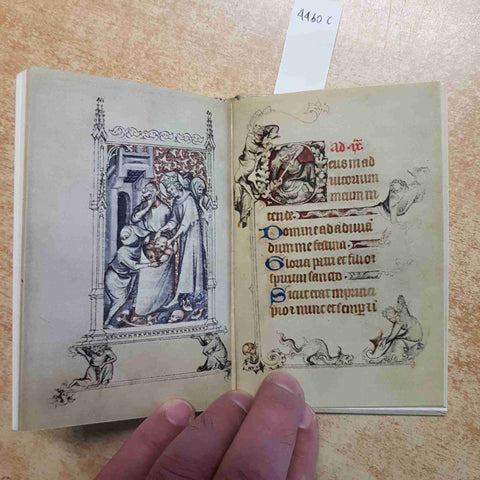 4460 C
ad ix
Deus in ad
iutorium
meum in
tende.
Domine ad adiuuā
dum me festina
Gloria patri et filio ⁊
spiritui sancto.
Sicut erat in princi
pio ⁊ nunc et semp̄ ⁊ ī